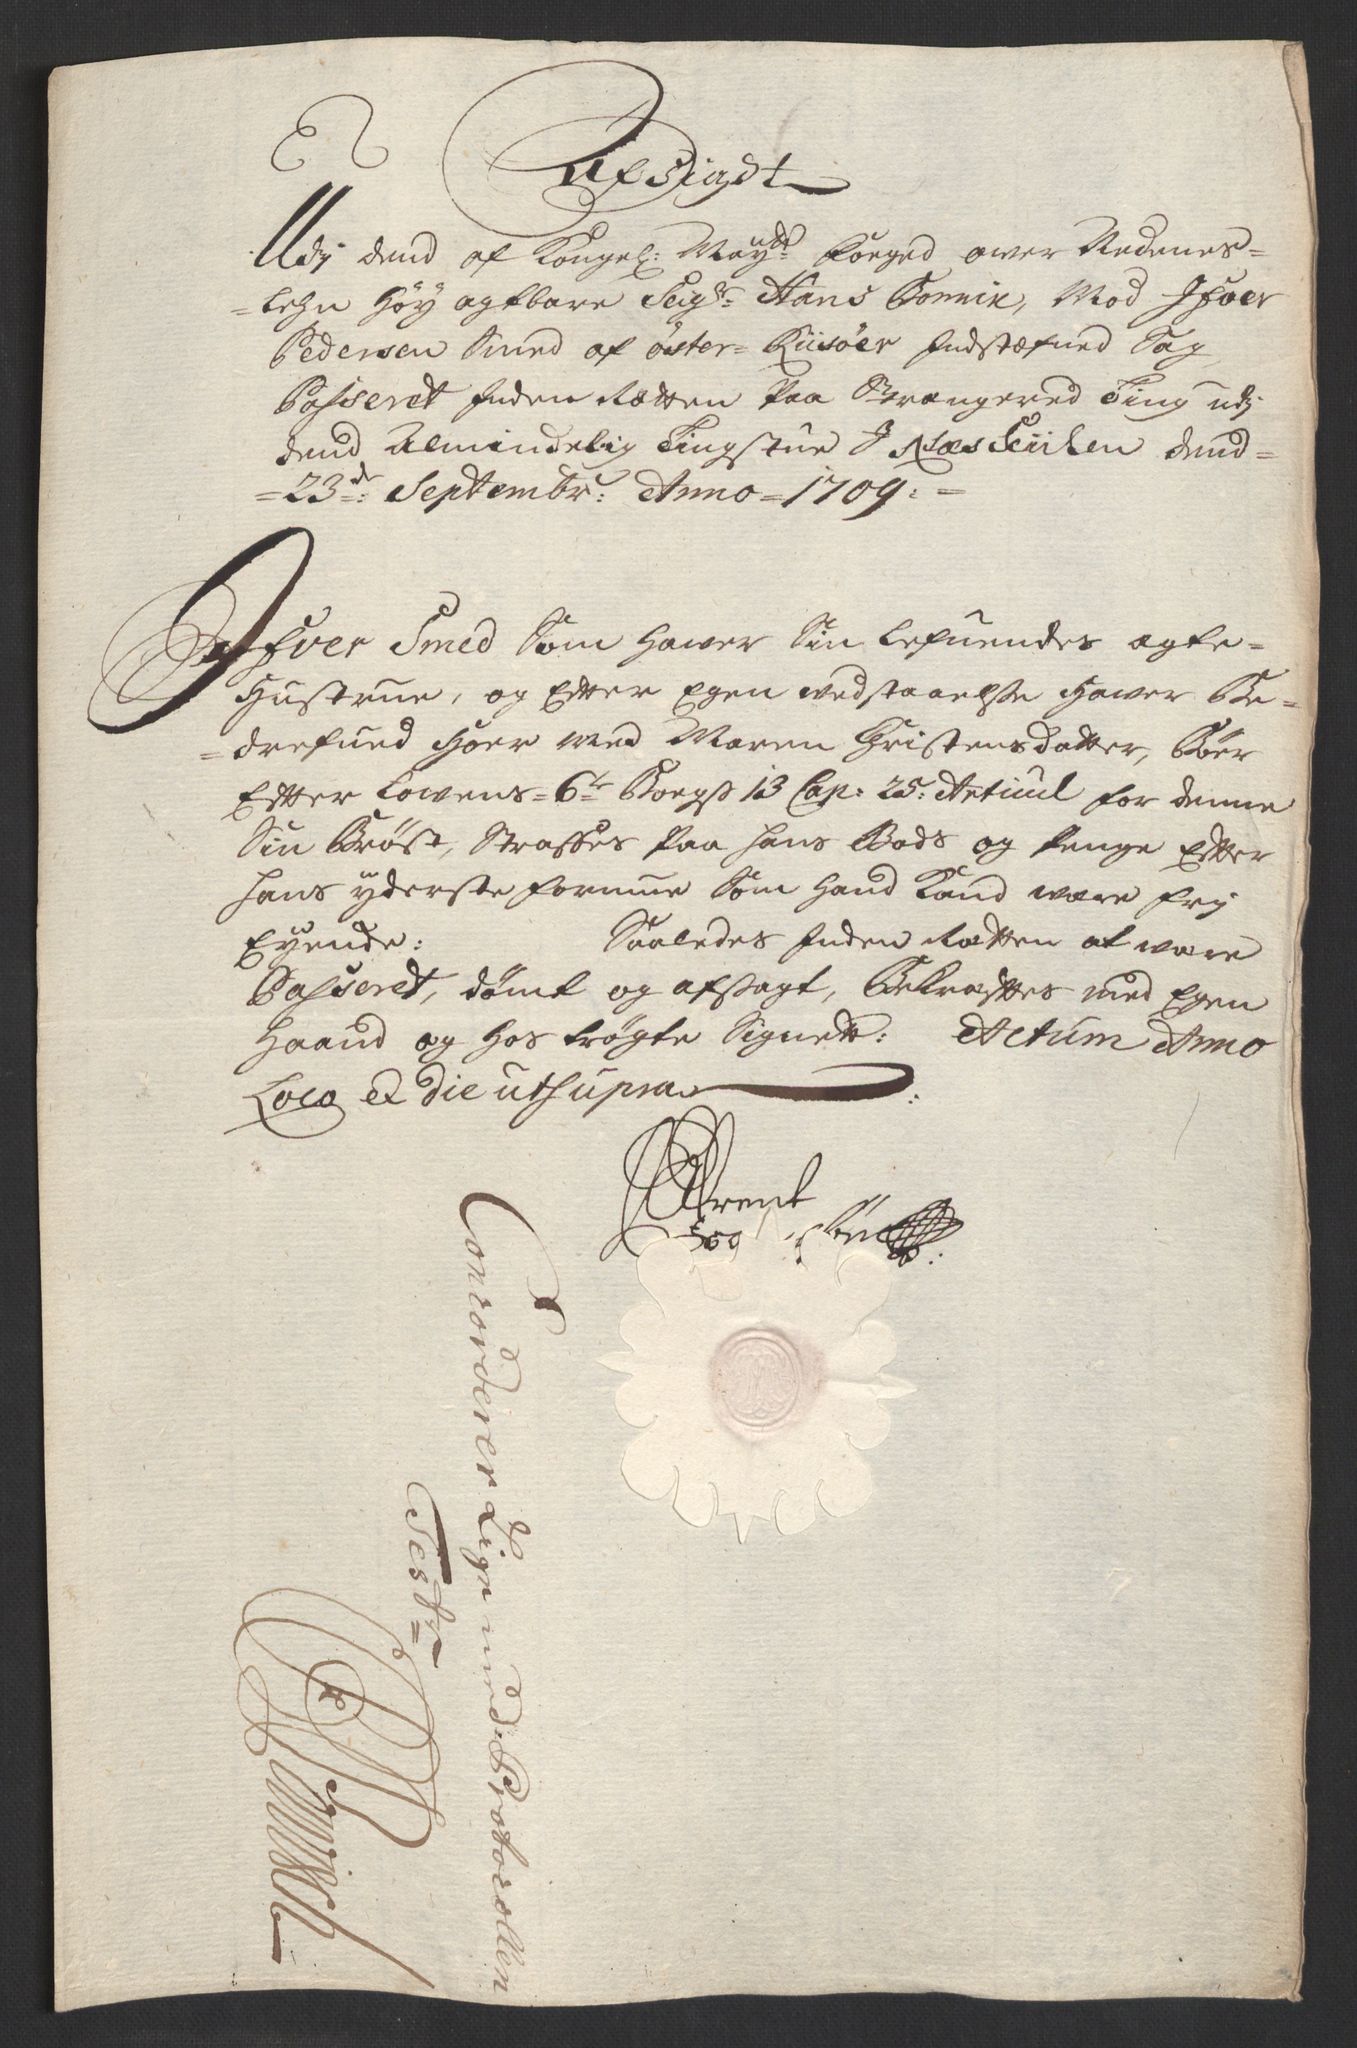 Afsigdt
Udj dend af Kongel: Mayts: Foeged ower Nedenes-
-Lehn høy agtbare Seigr: Hans Bonnix, Mod Ifuer
Pedersen Smed af öster- Riisöer Indstefned Sag,
Passeret Inden Retten paa Strangereed Ting udj
dend Almindelig Tingstue I Næs Kiilen dend
=23de: Septembr: Anno =1709:=
Ifver Smed Som hawer Sin Lefuendes agte-
Hustrue, og Efter Egen wedstaaelsse hawer Be-
-drefued Hoer med Maren Christensdatter, bör
Efter Lowens =6te Bogs 13 Cap: 25: Articul for denne
Sin Bröst, Straffes paa hans Bods og penge Efter
hans yderste formue Som hand Kand were frj
Eyende: Saaledes Inden Retten at were
Passeret, dömt og afsagt, Bekreftes med Egen
Haand og hos trögte Signett: Actum Anno
Loco et die ut supra
Arent
Concorderer Lige med Protocollen
Test: